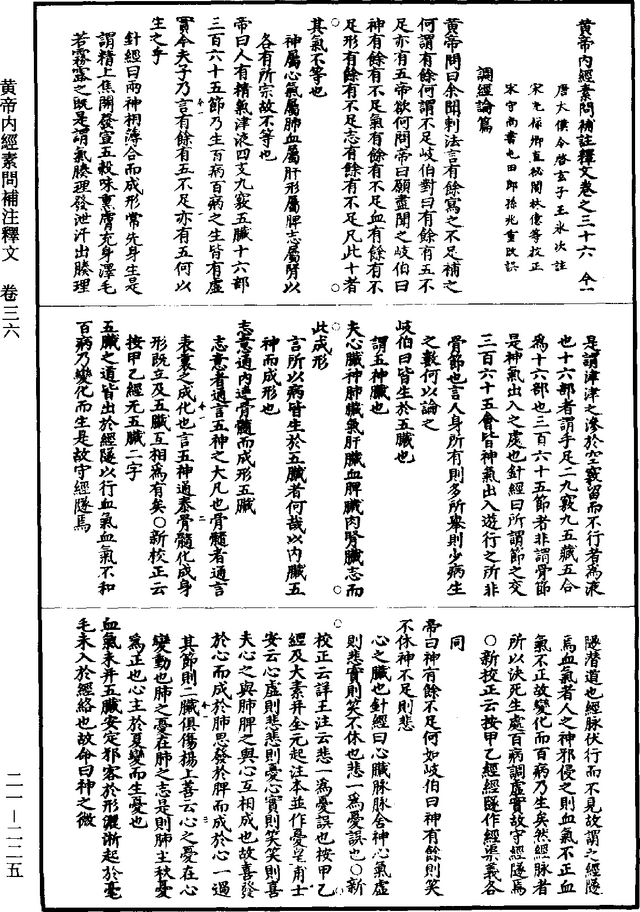 黄帝內經素問補註釋文卷之三十六 令一
唐太僕令啓玄子王氷次註
宋光祿卿直秘閣林億等校正
宋守尚書屯田郎孫兆重改誤
調經論篇
黄帝問曰余聞刺法言有餘寫之不足補之
何謂有餘何謂不足岐伯對曰有餘有五不
足亦有五帝欲何問帝曰願盡聞之岐伯曰
神有餘有不足氣有餘有不足血有餘有不
足形有餘有不足志有餘有不足凡此十者
其氣不等也
神屬心氣屬肺血屬肝形屬脾志屬腎以
各有所宗故不等也
帝曰人有精氣津液四支九竅五臟十六部
三百六十五節乃生百病百病之生皆有虛
實今夫子乃言有餘有五不足亦有五何以
生之乎
針經曰兩神相薄合而成形常先身生是
謂精上焦開發宣五穀味熏膚充身澤毛
若霧露之溉是謂氣腠理發泄汗出腠理
是謂津津之滲於空竅留而不行者爲液
也十六部者謂手足二九竅九五藏五合
爲十六部也三百六十五節者非謂骨節
是神氣出入之處也針經曰所謂節之交
三百六十五會皆神氣出入遊行之所非
骨節也言人身所有則多所舉則少病生
之數何以論之
岐伯曰皆生於五臟也
謂五神臟也
夫心臟神肺臟氣肝臟血脾臟肉腎臟志而
此成形
言所以病皆生於五臟者何哉以內臟五
神而成形也
志意通內連骨髓而成形五臟
志意者通言五神之大凡也骨髓者通言
表裏之成化也言五神通泰骨髓化成身
形既立乃五臟互相爲有矣○新校正云
按甲乙經无五臟二字
五臟之道皆出於經隧以行血氣血氣不和
百病乃變化而生是故守經隧焉
隧潜道也經脉伏行而不見故謂之經隧
焉血氣者人之神邪侵之則血氣不正血
氣不正故變化而百病乃生矣然經脉者
所以決死生處百病調虛實故守經隧焉
○新校正云按甲乙經經隧作經渠義各
同
帝曰神有餘不足何如岐伯曰神有餘則笑
不休神不足則悲
心之臟也針經曰心臟脉脉舍神心氣虛
則悲實則笑不休也悲一爲憂誤也○新
校正云詳王注云悲一爲憂誤也按甲乙
經及大素并全元起注本並作憂皇甫士
安云心虛則悲悲則憂心實則笑笑則喜
夫心之與肺脾之與心互相成也故喜發
於心而成於肺思發於脾而成於心一過
其節則二臟俱傷楊上善云心之憂在心
變動也肺之憂在肺之志是則肺主秋憂
爲正也心主於夏變而生憂也
血氣未并五臟安定邪客於形灑淅起於毫
毛未入於經絡也故命曰神之微
黄帝内經素問補注釋文 卷三六
二一—二二五